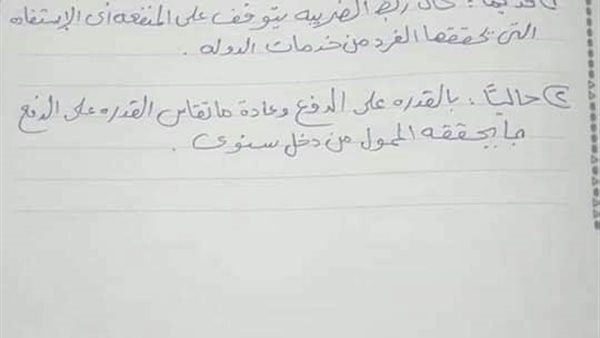 قديماً: كان ربط الضريبه يتوقف على المنفعه أى الإستفاه
التى يحققها الفرد من خدمات الدوله.
② حالياً: بالقدره على الدفع وعادة ماتقاس القدره على الدفع
بما يحققه الممول من دخل سنوى.